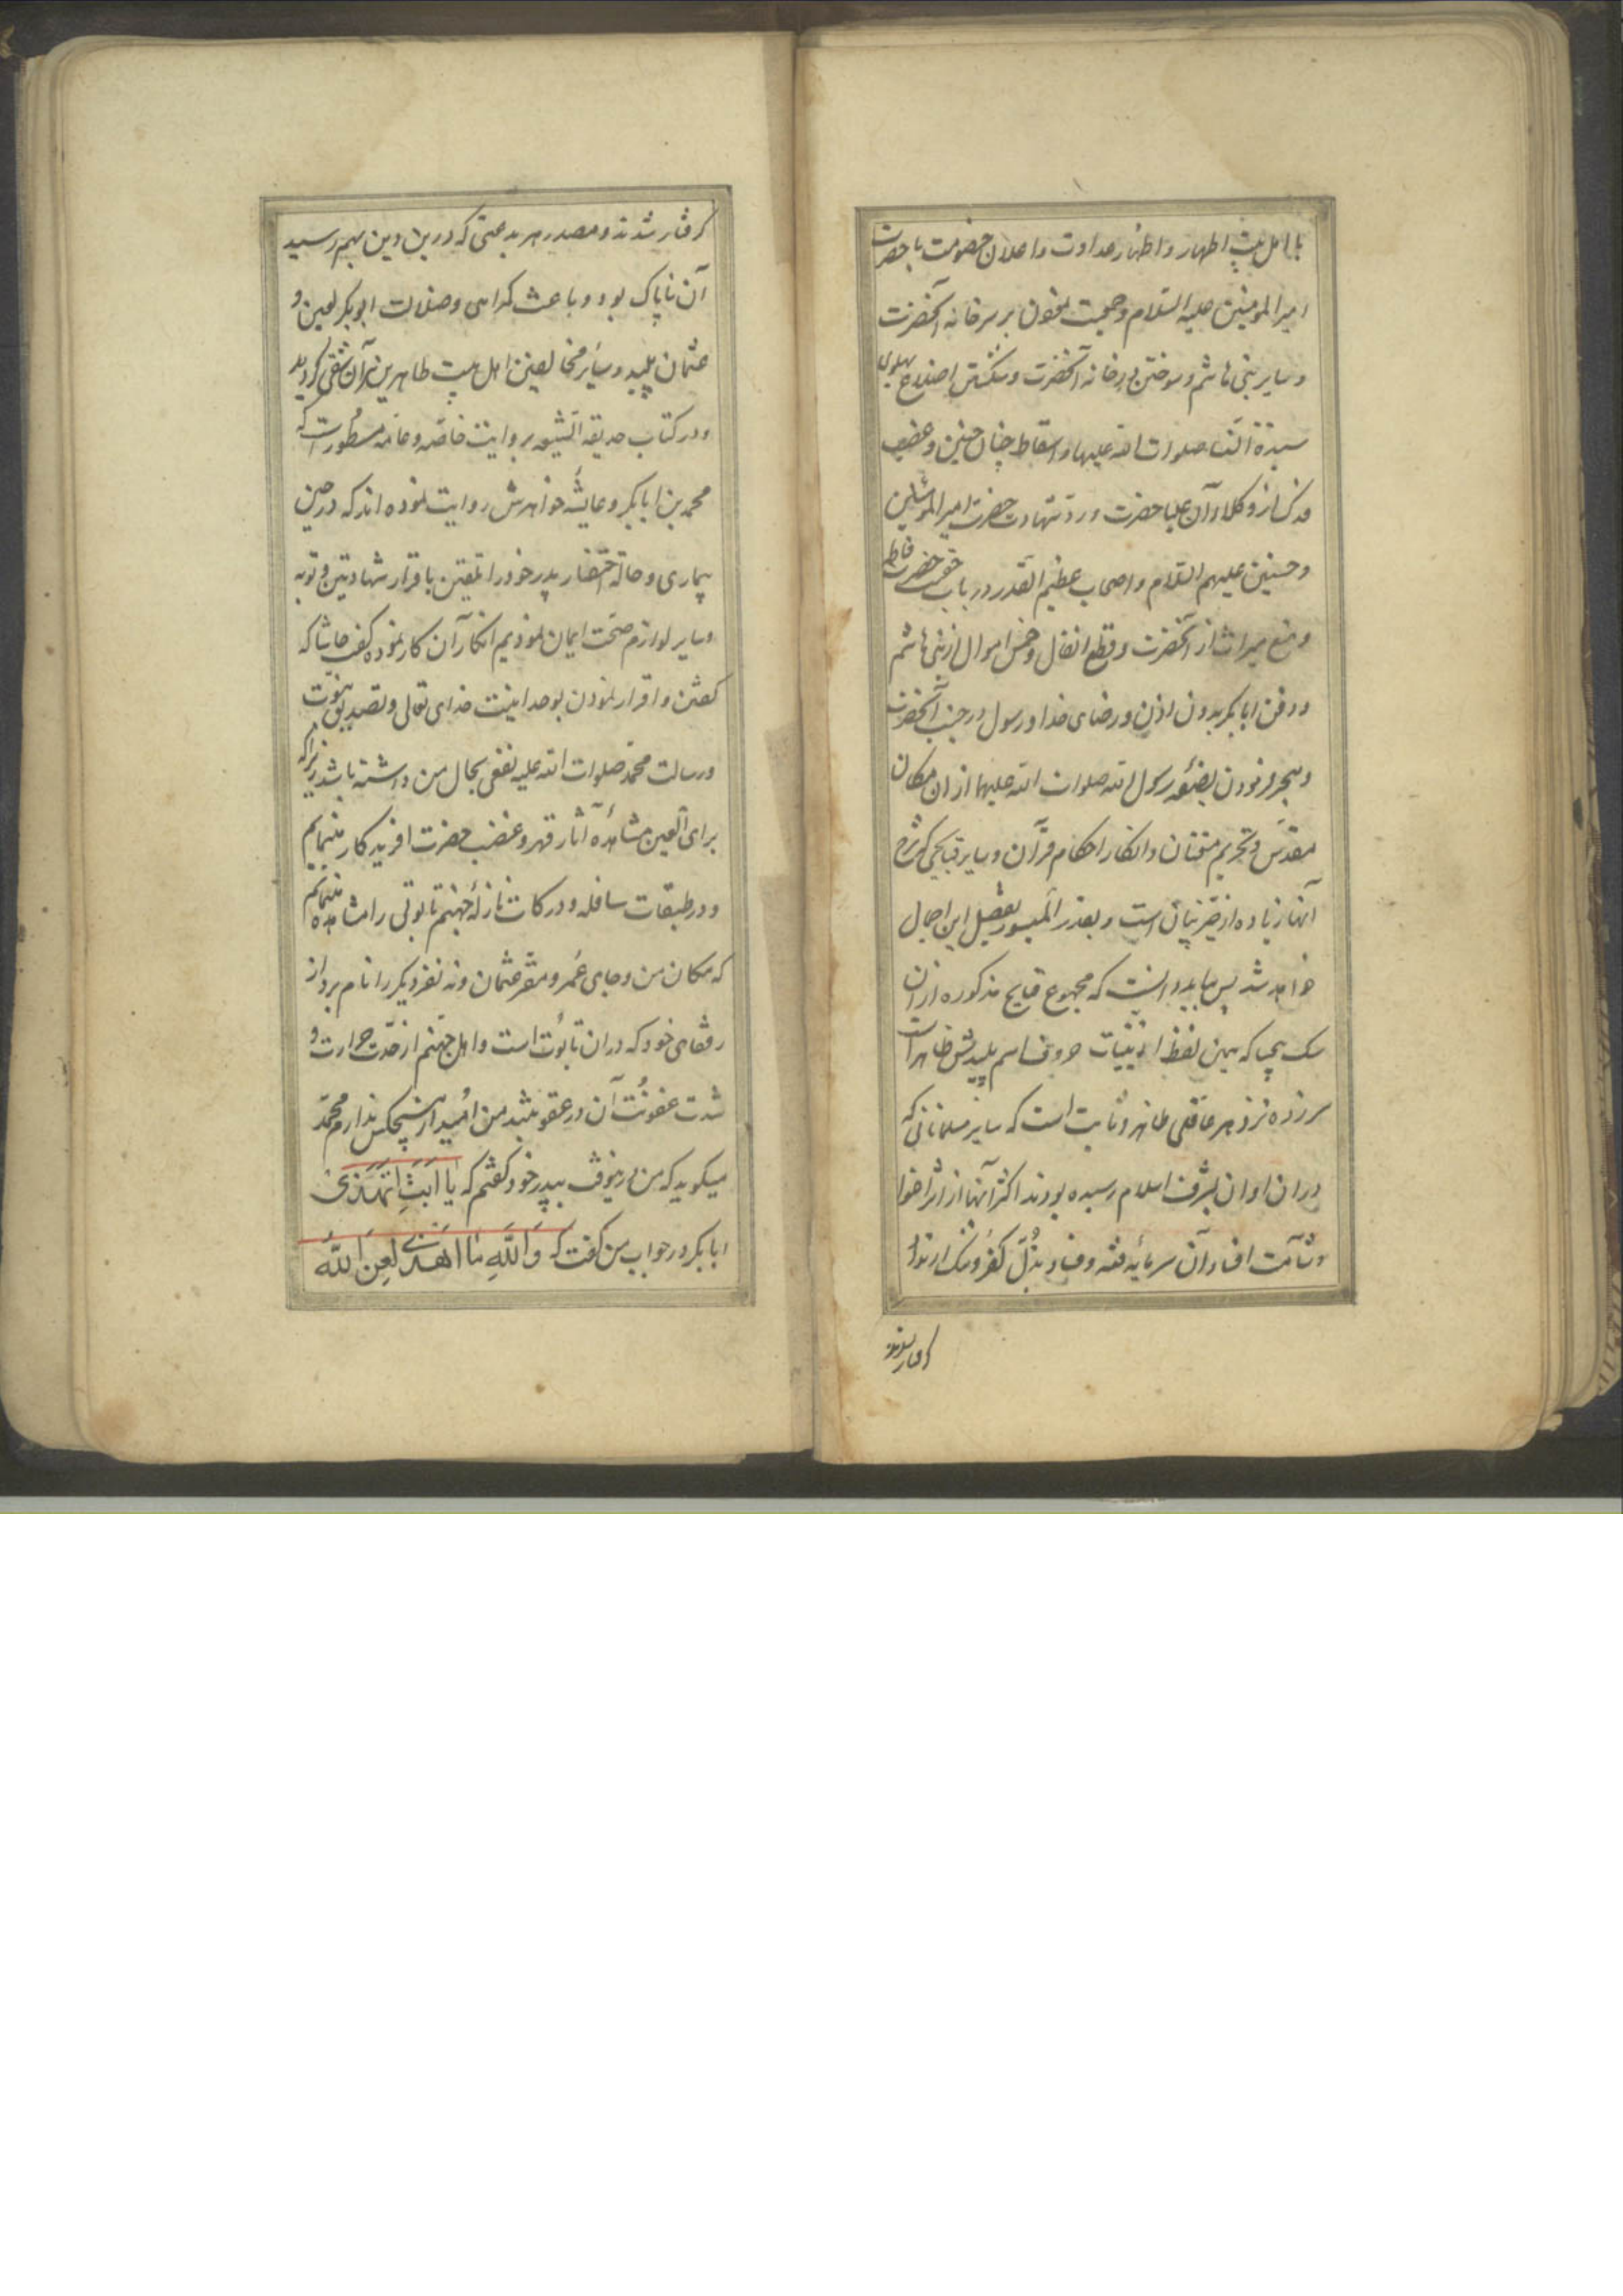 با اهل بیت اطهار و اظهار عداوت و اعلان خصومت با حضرت
امیرالمومنین علیه السلام و جمعیت نمودن بر سر خانه آنحضرت
و سایر بنی هاشم و سوختن در خانه آنحضرت و شکستن اضلاع پهلوی
سیدة النسا صلوات الله علیها و اسقاط جنین و غصب
فدک از وکلاء آن علیا حضرت و رد شهادت حضرت امیرالمومنین
و حسنین علیهم السلام و اصحاب عظیم القدر در باب حقیت حضرت فاطمه
و منع میراث از آنحضرت و قطع انفال و خمس اموال از بنی هاشم
و دفن ابابکر بدون اذن و رضای خدا و رسول در جنب آنحضرت
و مهجور نمودن بضعه رسول الله صلوات الله علیهما از ان مکان
مقدس و تحریم متعتان و انکار احکام قرآن و سایر قبایحی که شرح
آنها زیاده از حیز بیان است و بقدر المیسور تفصیل این اجمال
خواهد شد پس بباید دانست که مجموع قبایح مذکوره از ان
سک بیحیا که همین لفظ از بینات حروف اسم پلیدش ظاهر است
سر زده نزد هر عاقلی ظاهر و ثابت است که سایر مسلمانانی که
در ان اوان بشرف اسلام رسیده بودند اکثر آنها از اثر اغوا
و شآمت افساد آن سرمایه فتنه و فساد بذل کفر و ننک ارتداد
کرفتار شدند
کرفتار شدند و مصدر هر بدعتی که درین دین بهم رسید
آن ناپاک بود و باعث کمراهی و ضلالت ابوبکر لعین و
عثمان پلید و سایر مخالفین اهل بیت طاهرین نیز آن شقی کردید
و در کتاب حدیقه الشیعه بروایت خاصه و عامه مسطور است که
محمد بن ابابکر و عایشه خواهرش روایت نموده اند که در حین
بیماری و حالة احتضار پدر خود را تلقین باقرار شهادتین و توبه
و سایر لوازم صحت ایمان نمودیم انکار آن کار نموده گفت حاشا که
گفتن و اقرار نمودن بوحدانیت خدای تعالی و تصدیق نبوت
و رسالت محمد صلوات الله علیه نفعی بحال من داشته باشد زیرا که
برای العین مشاهده آثار قهر و غضب حضرت افریدکار مینمایم
و در طبقات سافله و درکات نازله جهنم تابوتی را مشاهده مینمایم
که مکان من و جای عمر و مقر عثمان و نه نفر دیکر را نام برد از
رفقای خود که در ان تابوت است و اهل جهنم از حدت حرارت و
شدت عفونت آن در عقوبتند من امید از هیچکس ندارم محمد
میکوید که من درینوقت بپدر خود گفتم که یا ابت اتهذی
ابابکر در جواب من گفت که والله ما اهذی لعن الله